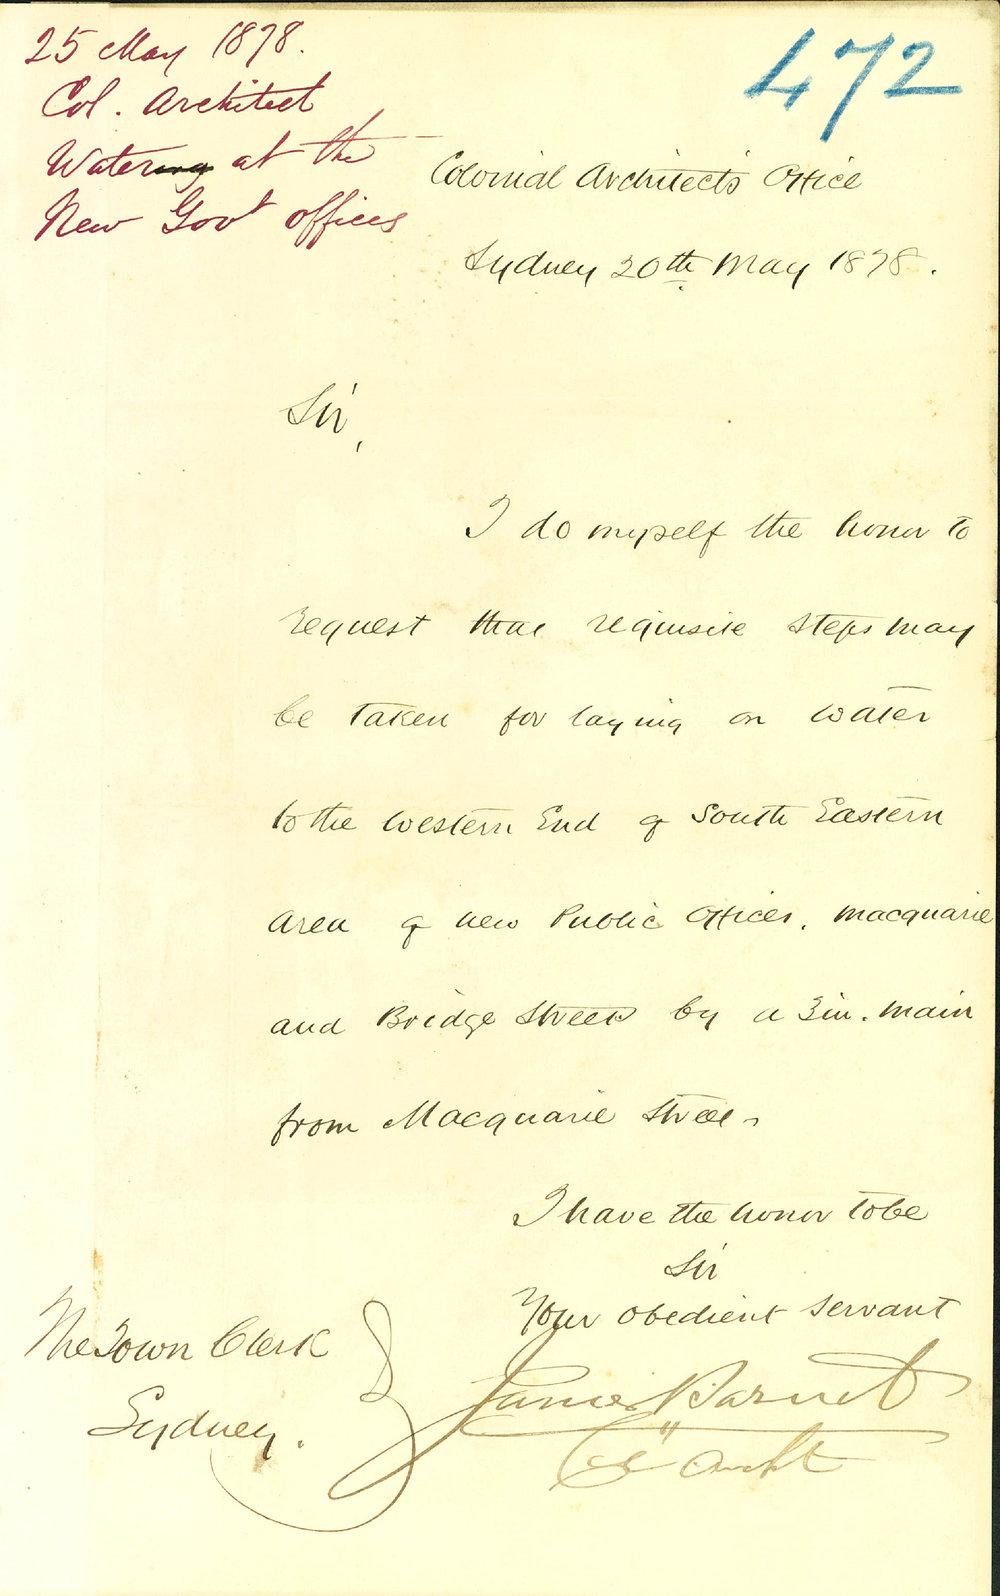 25 May 1878.
Col. Architect
Watering at the
New Govt offices
472
Colonial Architect's Office
Sydney 20th May 1878.
Sir,
I do myself the honor to
request that requisite steps may
be taken for laying on water
to the Western End of South Eastern
area of new Public Offices, Macquarie
and Bridge Streets by a 3in. main
from Macquarie Street
I have the honor to be
Sir
Your obedient servant
James Barnet
Col Archt
The Town Clerk
Sydney.